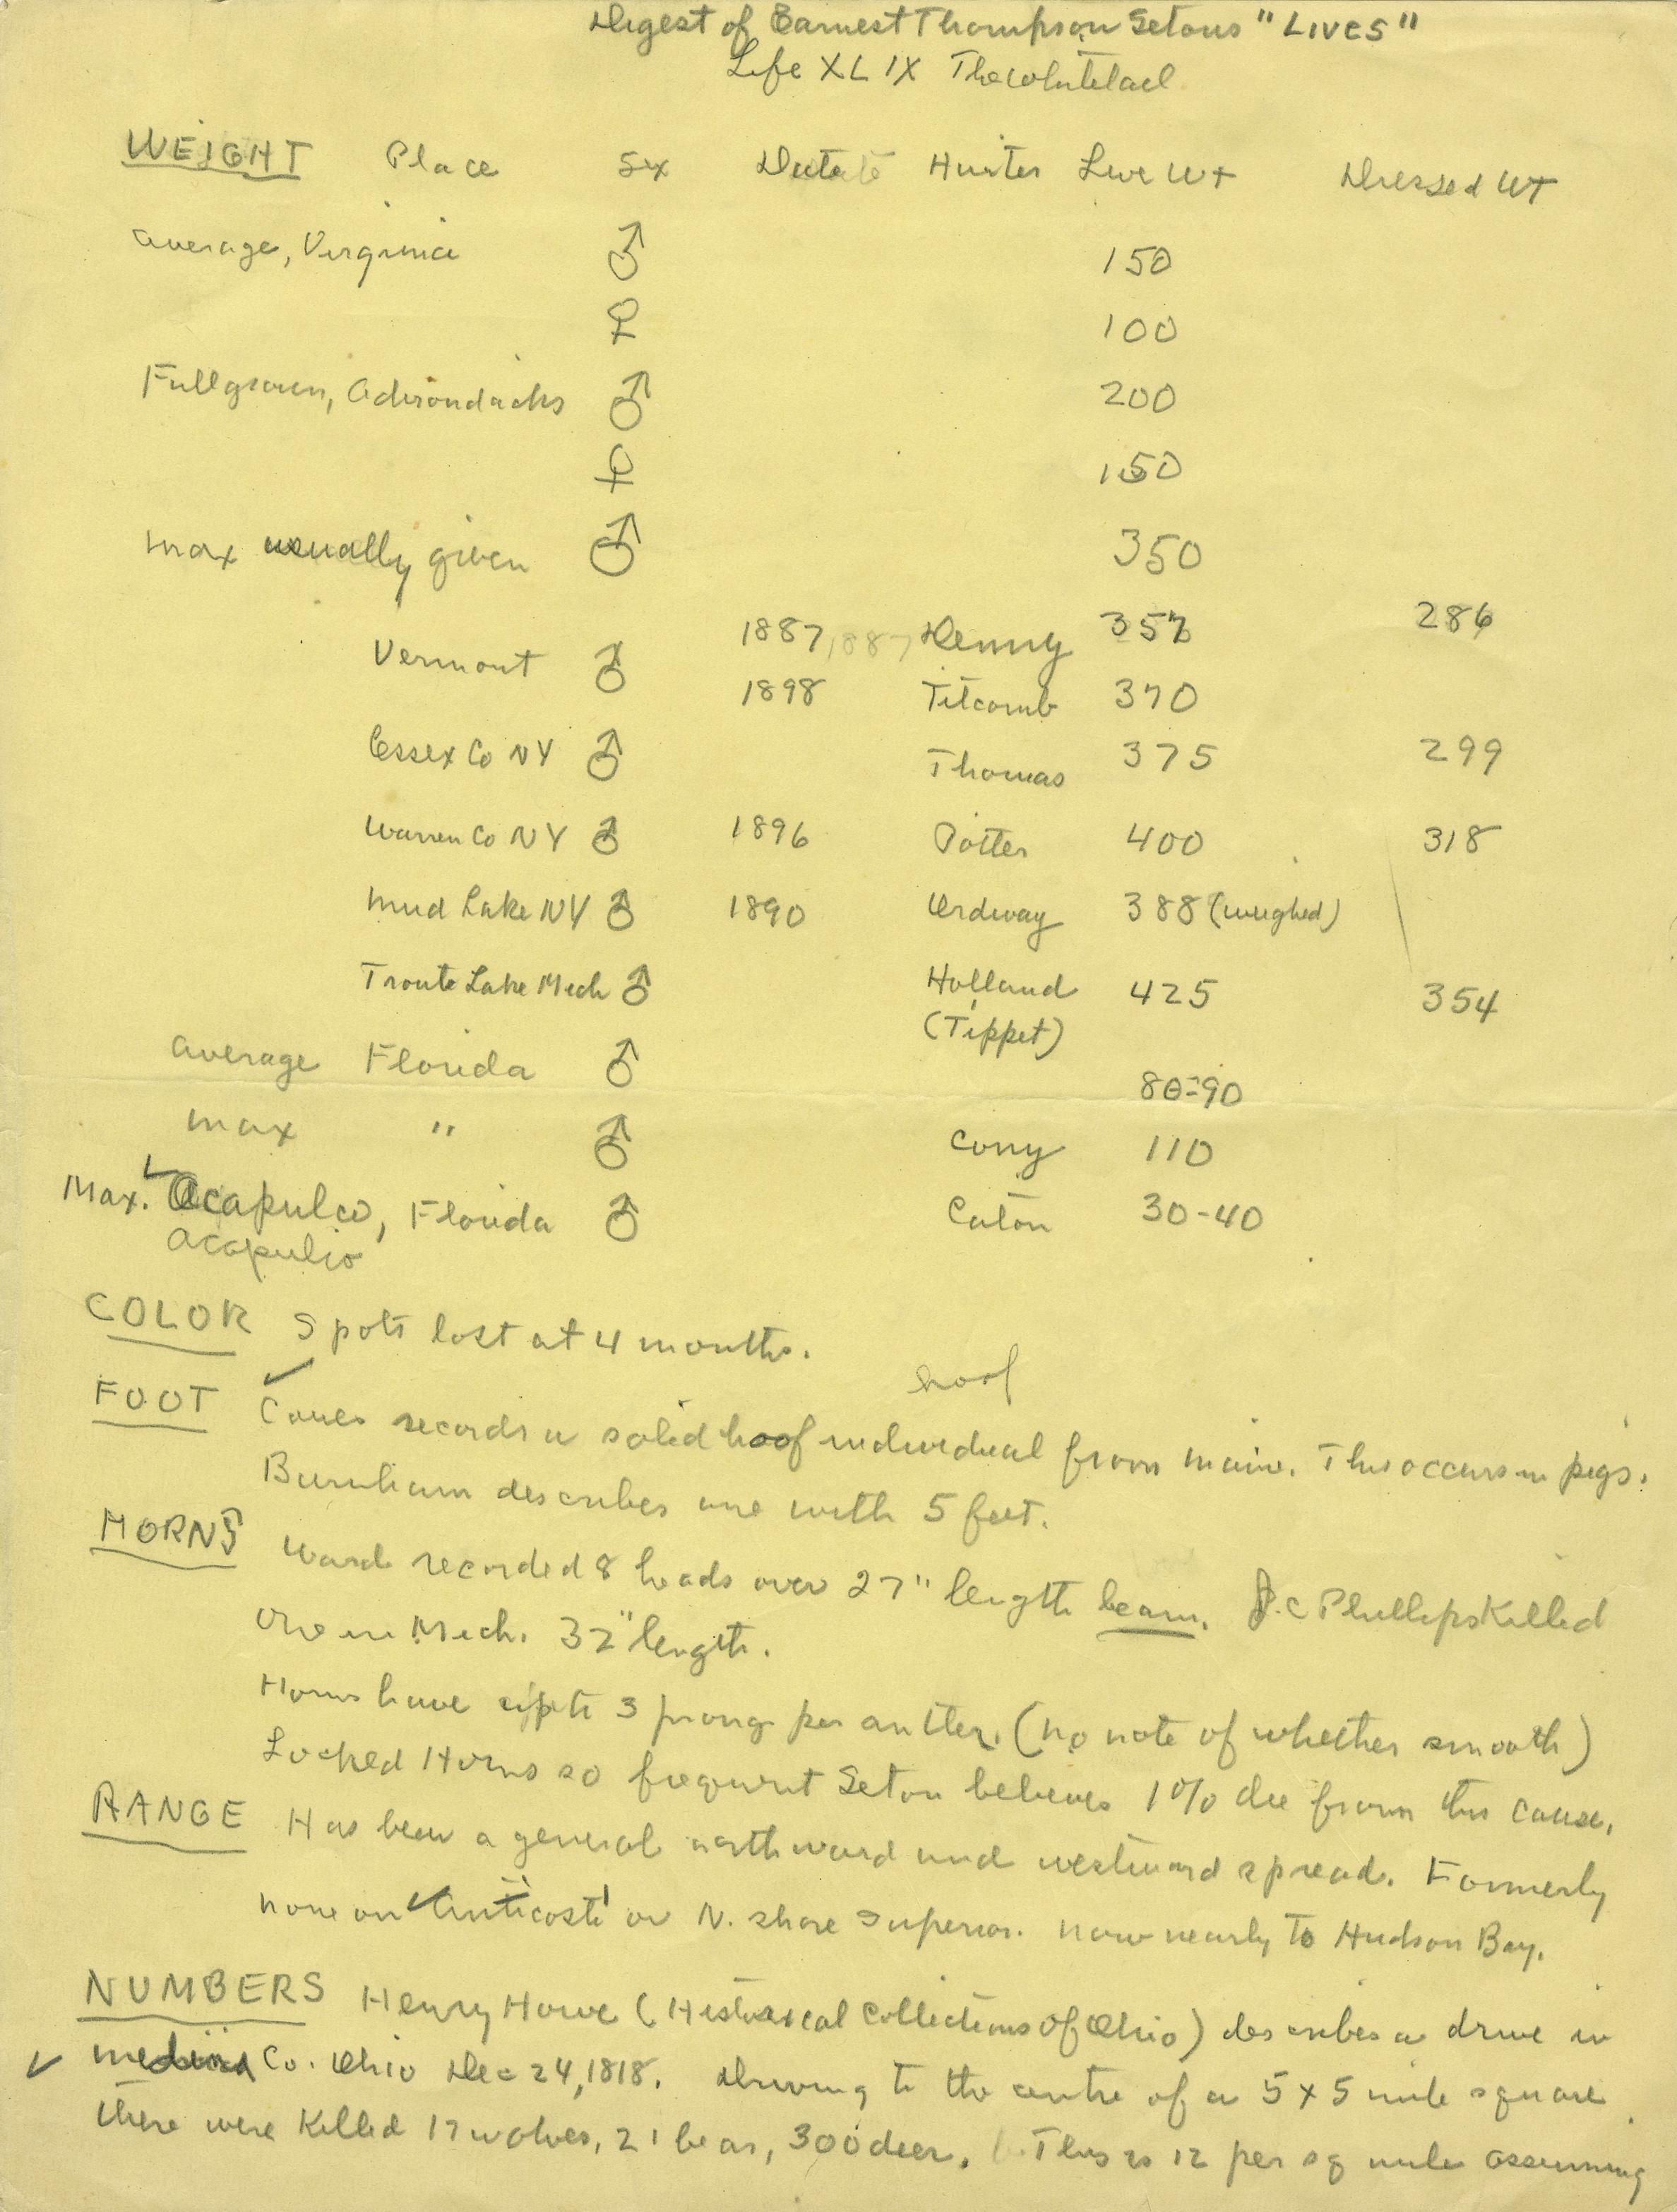 Digest of Earnest Thompson Setons "LIVES"
Life XLIX The Whitetail
WEIGHT Place Sex Date Hunter Live Wt Dressed WT
average, Virginia ♂ 150
♀ 100
Fullgrown, Adirondacks ♂ 200
♀ 150
max usually given ♂ 350
Vermont ♂ 1887 1887 Denny 286
1898 Titcomb 370
Essex Co NY ♂ Thomas 375 299
Warren Co NY ♂ 1896 Potter 400 318
Mud Lake NY ♂ 1890 Ordway 388 (weighed)
Troute Lake Mich ♂ Holland 425 354
(Tippet)
average Florida ♂ 80-90
max " ♂ Cory 110
Max. Acapulco, Florida ♂ Caton 30-40
acapulco
COLOR Spots lost at 4 months.
hoof
FOOT Coues records a solid hoof individual from Maine. This occurs in pigs.
Burnham describes one with 5 feet.
HORNS Ward recorded 8 heads over 27" length beam. J.C Phillips Killed
one in Mich. 32" length.
Horns have up to 3 prongs per antler. (no note of whether smooth)
Locked Horns so frequent Seton believes 1% die from this cause.
RANGE Has been a general northward and westward spread. Formerly
none on Anticosti or N. shore Superior. now nearly to Hudson Bay.
NUMBERS Henry Howe (Historical Collections of Ohio) describes a drive in
Medina Co. Ohio Dec 24, 1818. Driving to the centre of a 5 x 5 mile square
there were Killed 17 wolves, 21 bear, 300 deer. This is 12 per sq mile assuming